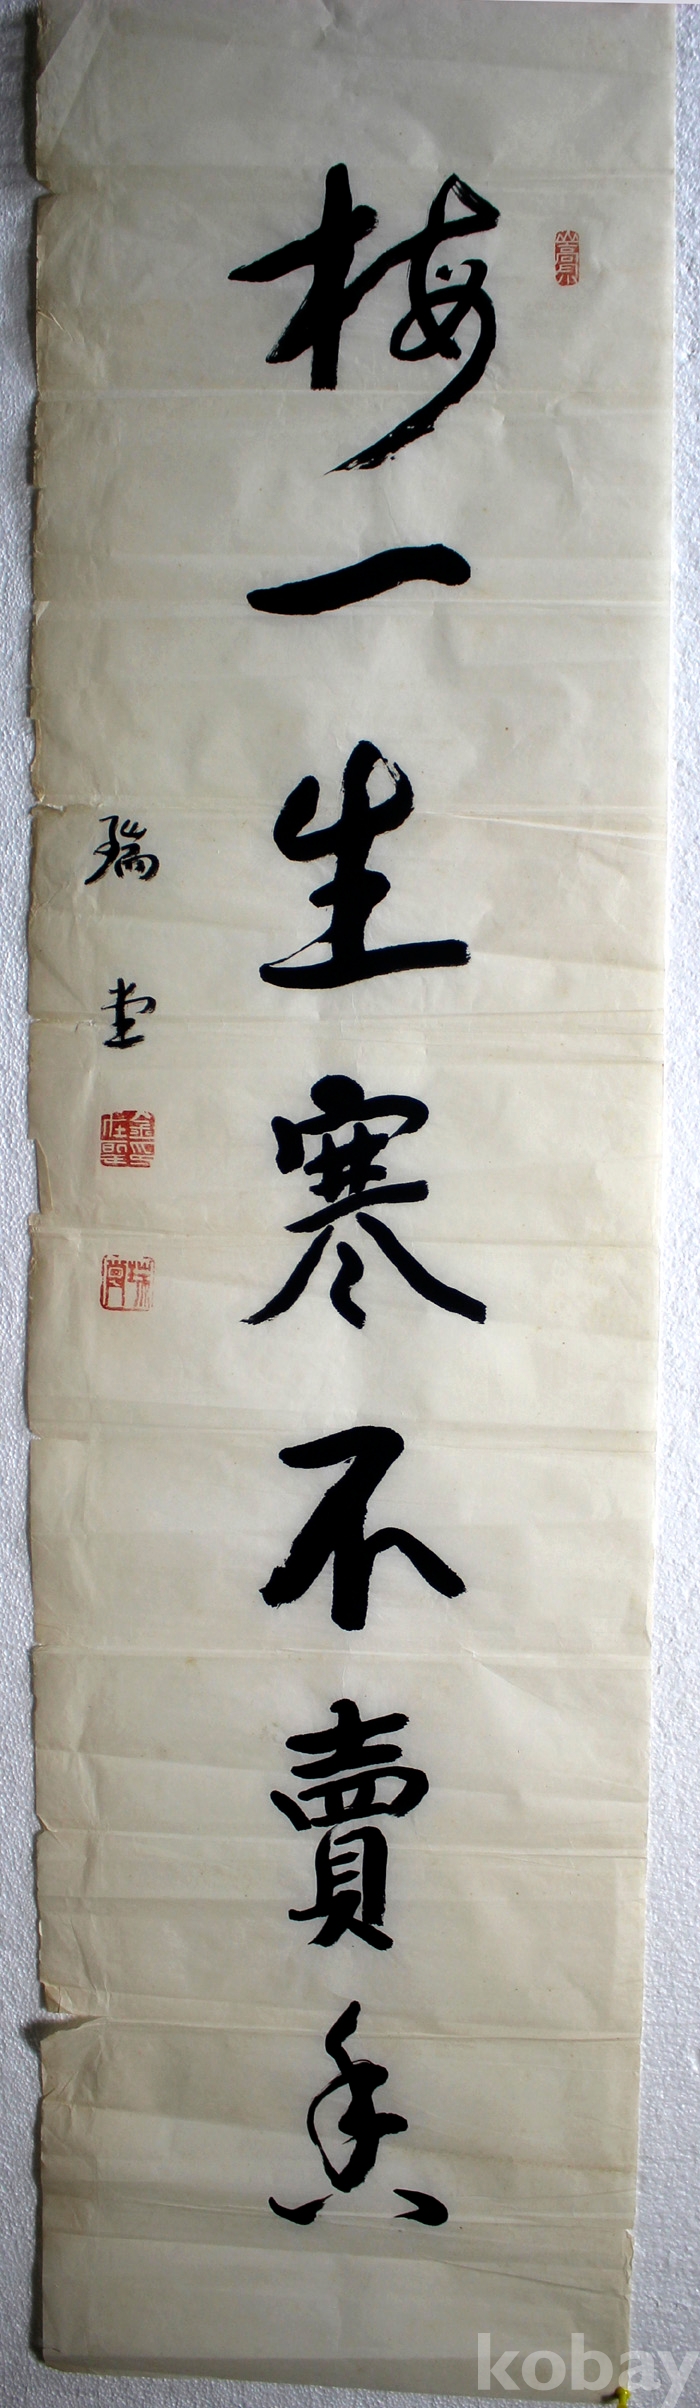 梅一生寒不賣香
瑞堂
kobay